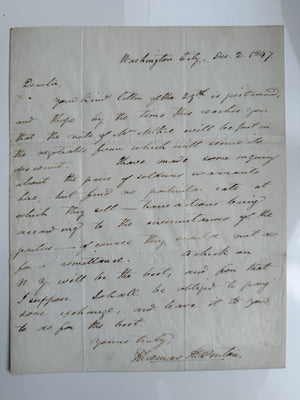 Washington City, Dec. 2. 1847.
Dear Sir,
Your kind letter of the 29th is just received,
and I hope by the time this reaches you
that the note of Mr will be put in
the negotiable form which will secure its
discount. I have made some inquiry
about the price of warrants
here, but find no particular rate at
which they sell — transactions being
according to the circumstances of the
parties — of course they would not do
for a remittance. A check on
N. Y. will be the best, and for that
I suppose I shall be obliged to pay
some exchange, and leave it to you
to do for the best.
Yours truly,
Thomas H. Benton.